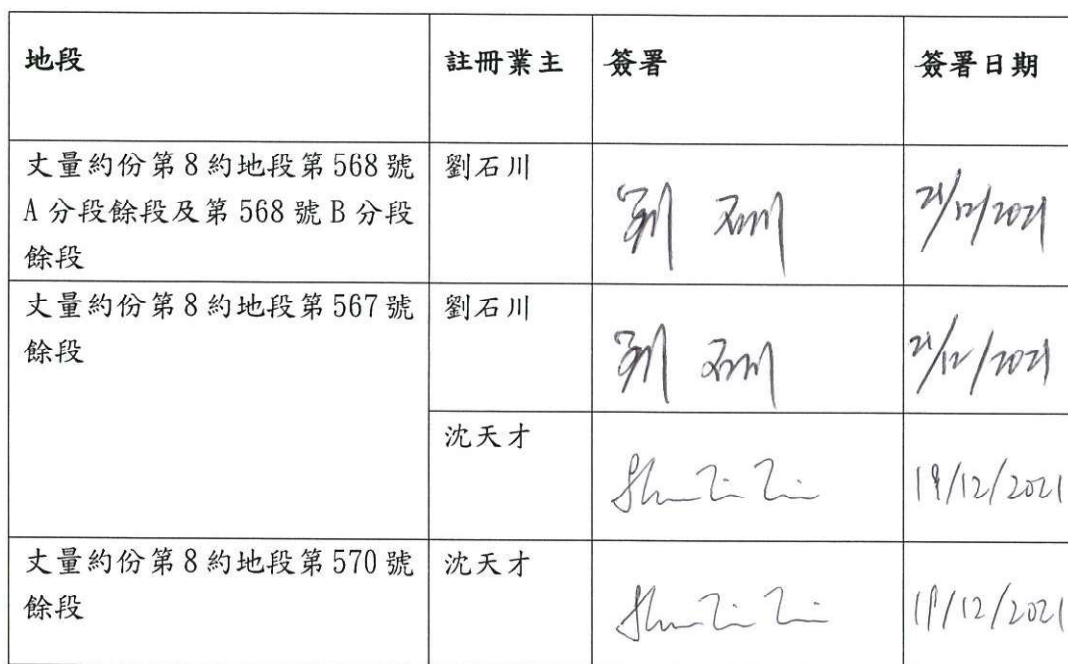 地段 註冊業主 簽署 簽署日期
丈量約份第8約地段第568號 劉石川
A分段餘段及第568號B分段 劉石川 21/12/2021
餘段
丈量約份第8約地段第567號 劉石川
餘段 劉石川 21/12/2021
沈天才
19/12/2021
丈量約份第8約地段第570號 沈天才
餘段 19/12/2021